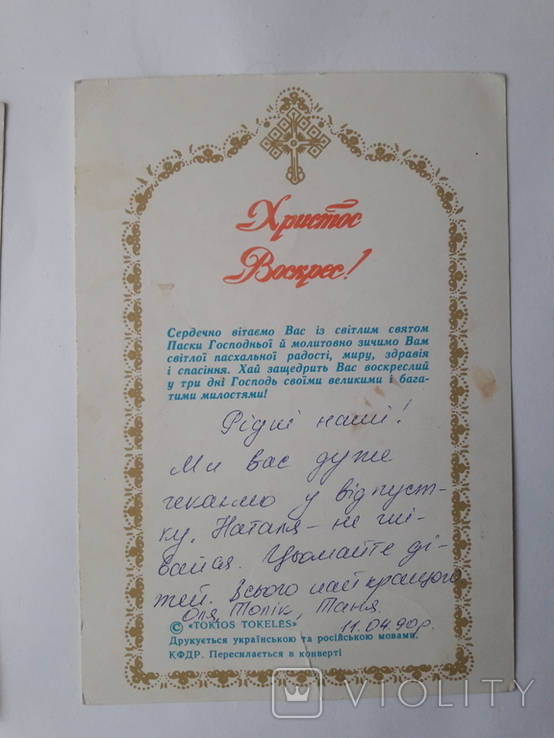 Христос
Воскрес!
Сердечно вітаємо Вас із світлим святом
Паски Господньої й молитовно зичимо Вам
світлої пасхальної радості, миру, здравія
і спасіння. Хай защедрить Вас воскреслий
у три дні Господь своїми великими і бага-
тими милостями!
Рідні наші!
Ми вас дуже
чекаємо у відпуст-
ку, Наталя – не гні-
вайся. Цьомайте ді-
тей. Всього найкращого
Оля, Толік, Таня.
11.04.90р.
© «TOKIOS TOKELĖS»
Друкується українською та російською мовами.
КФДР. Пересилається в конверті
VIOLITY